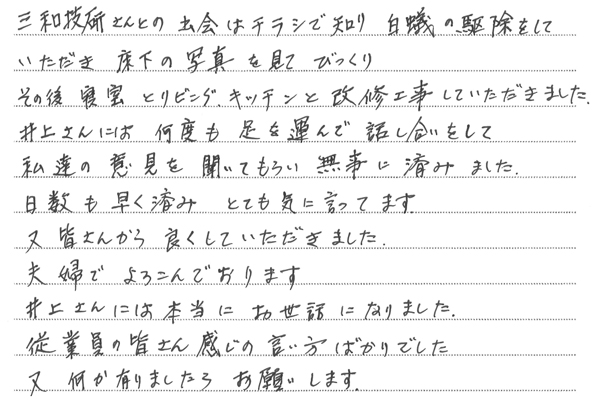 三和技所さんとの出会はチラシで知り 白蟻の駆除をして
いただき 床下の写真を見て びっくり
その後 寝室とリビング.キッチンと改修工事していただきました.
井上さんには 何度も足を運んで 話し合いをして
私達の意見を聞いてもらい 無事に済みました.
日数も早く済み とても気に言ってます.
又 皆さんから 良くしていただきました.
夫婦でよろこんでおります
井上さんには本当に お世話になりました.
従業員の皆さん 感じの言い方ばかりでした
又 何か有りましたら お願いします.